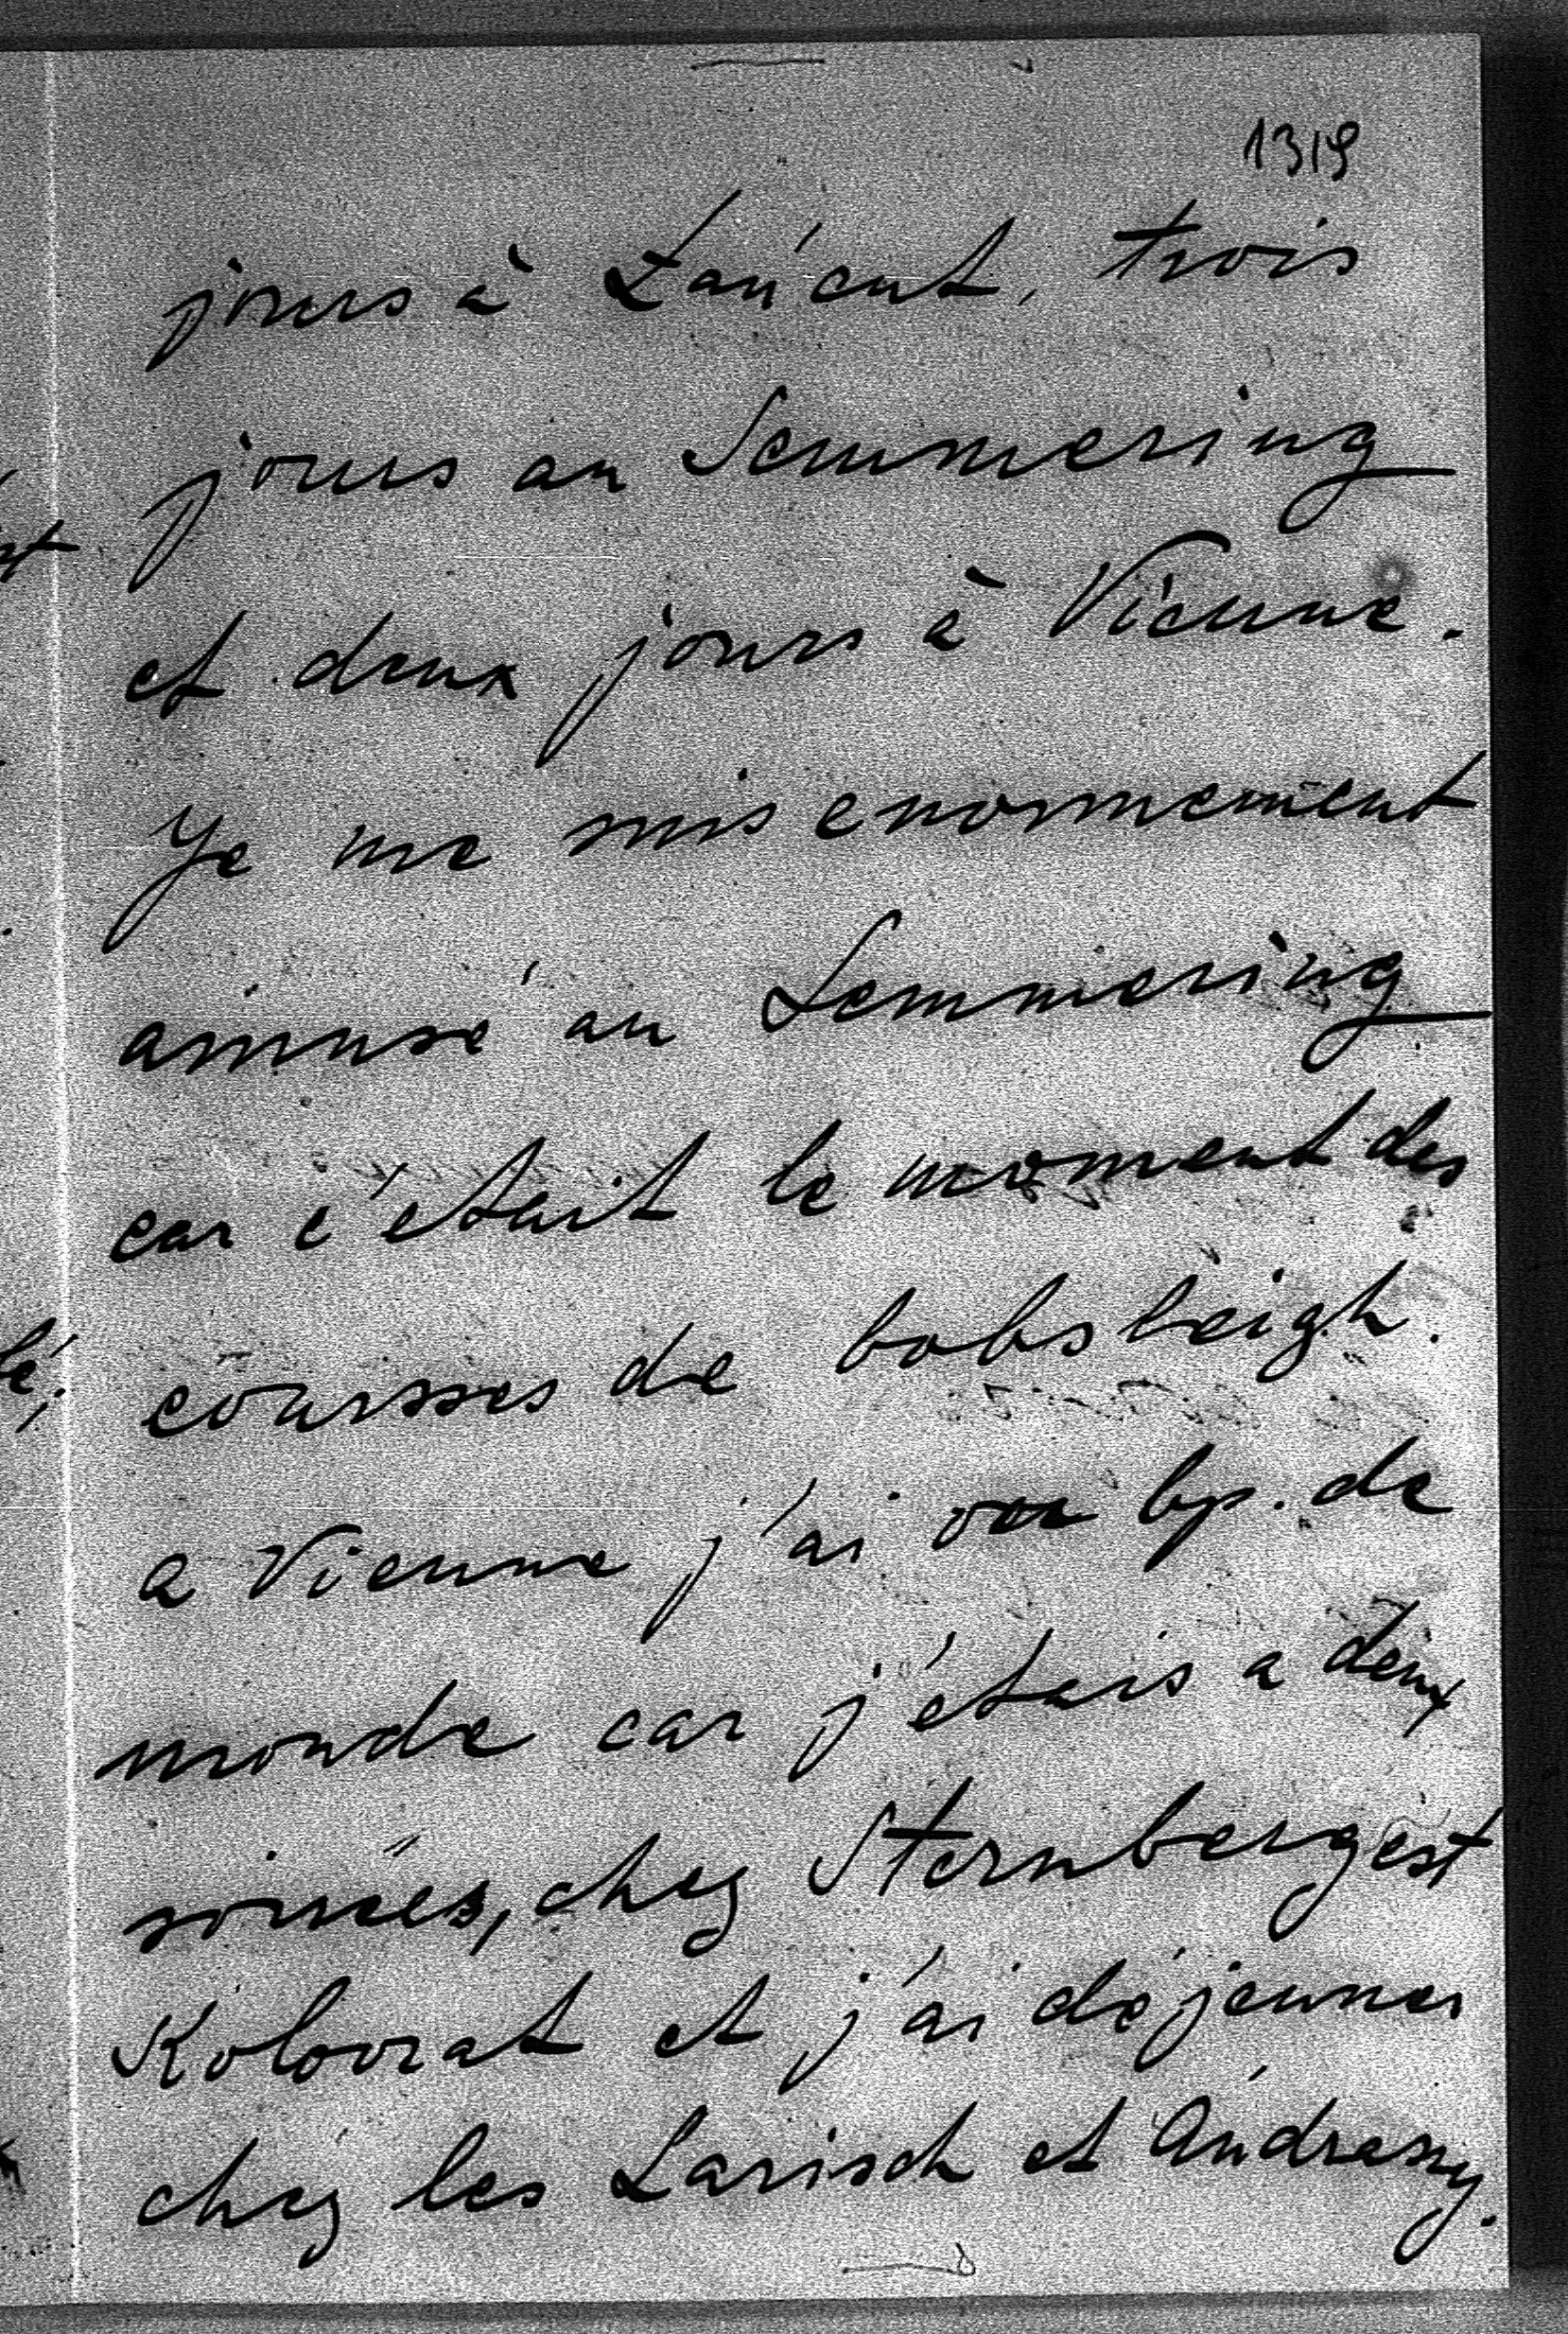 1319
jours à Łańcut, trois
jours au Semmering
et deux jours à Vienne.
Je me suis enormement
amusé au Semmering
car c'était le moment des
courses de bobsleigh.
a Vienne j'ai vu bp. de
monde car j'étais a deux
soirées, chez Sternberg et
Kolovrat et j'ai dejeuner
chez les Larisch et Andrassy.